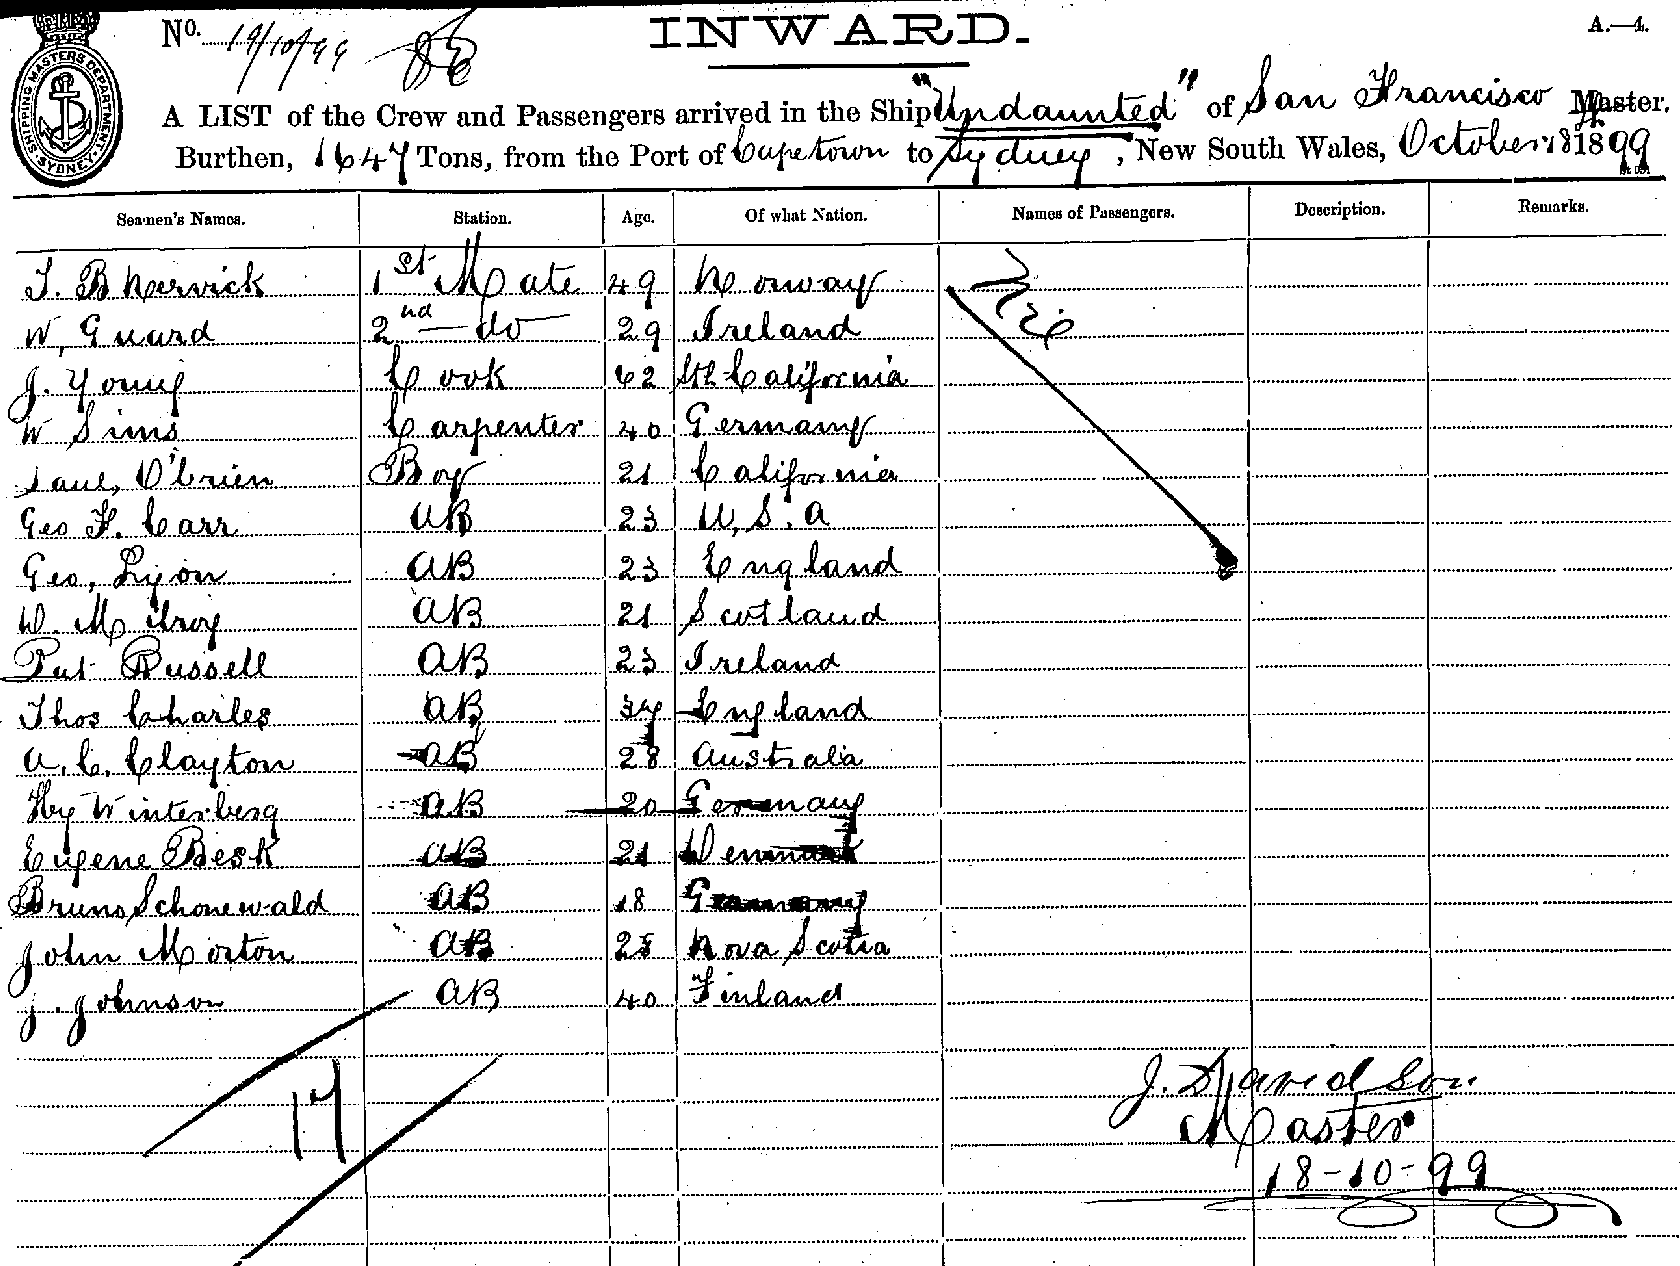 SHIPPING MASTERS DEPARTMENT SYDNEY
No. 19/10/99
INWARD.
A.—4.
A LIST of the Crew and Passengers arrived in the Ship "Undaunted" of San Francisco Master.
Burthen, 1647 Tons, from the Port of Capetown to Sydney, New South Wales, October 18 1899
Seamen's Names. Station. Age. Of what Nation. Names of Passengers. Description. Remarks.
T. B Nervick 1st Mate 49 Norway
W, Guard 2nd — do 29 Ireland
J. Young Cook 62 California
W Sims Carpenter 40 Germany
O'brien Boy 21 California
Geo F. Carr AB 23 U.S.A
Geo, Lyon AB 23 England
W. McIlroy AB 21 Scotland
Pat Russell AB 23 Ireland
Thos Charles AB 34 England
A. C. Clayton AB 28 Australia
Hy Winterberg AB 20 Germany
Eugene Besk AB 21 Denmark
Bruno Schonewald AB 18 Germany
John Morton AB Nova Scotia
J. Johnson AB 40 Finland
17
J. Davidson
Master
18-10-99